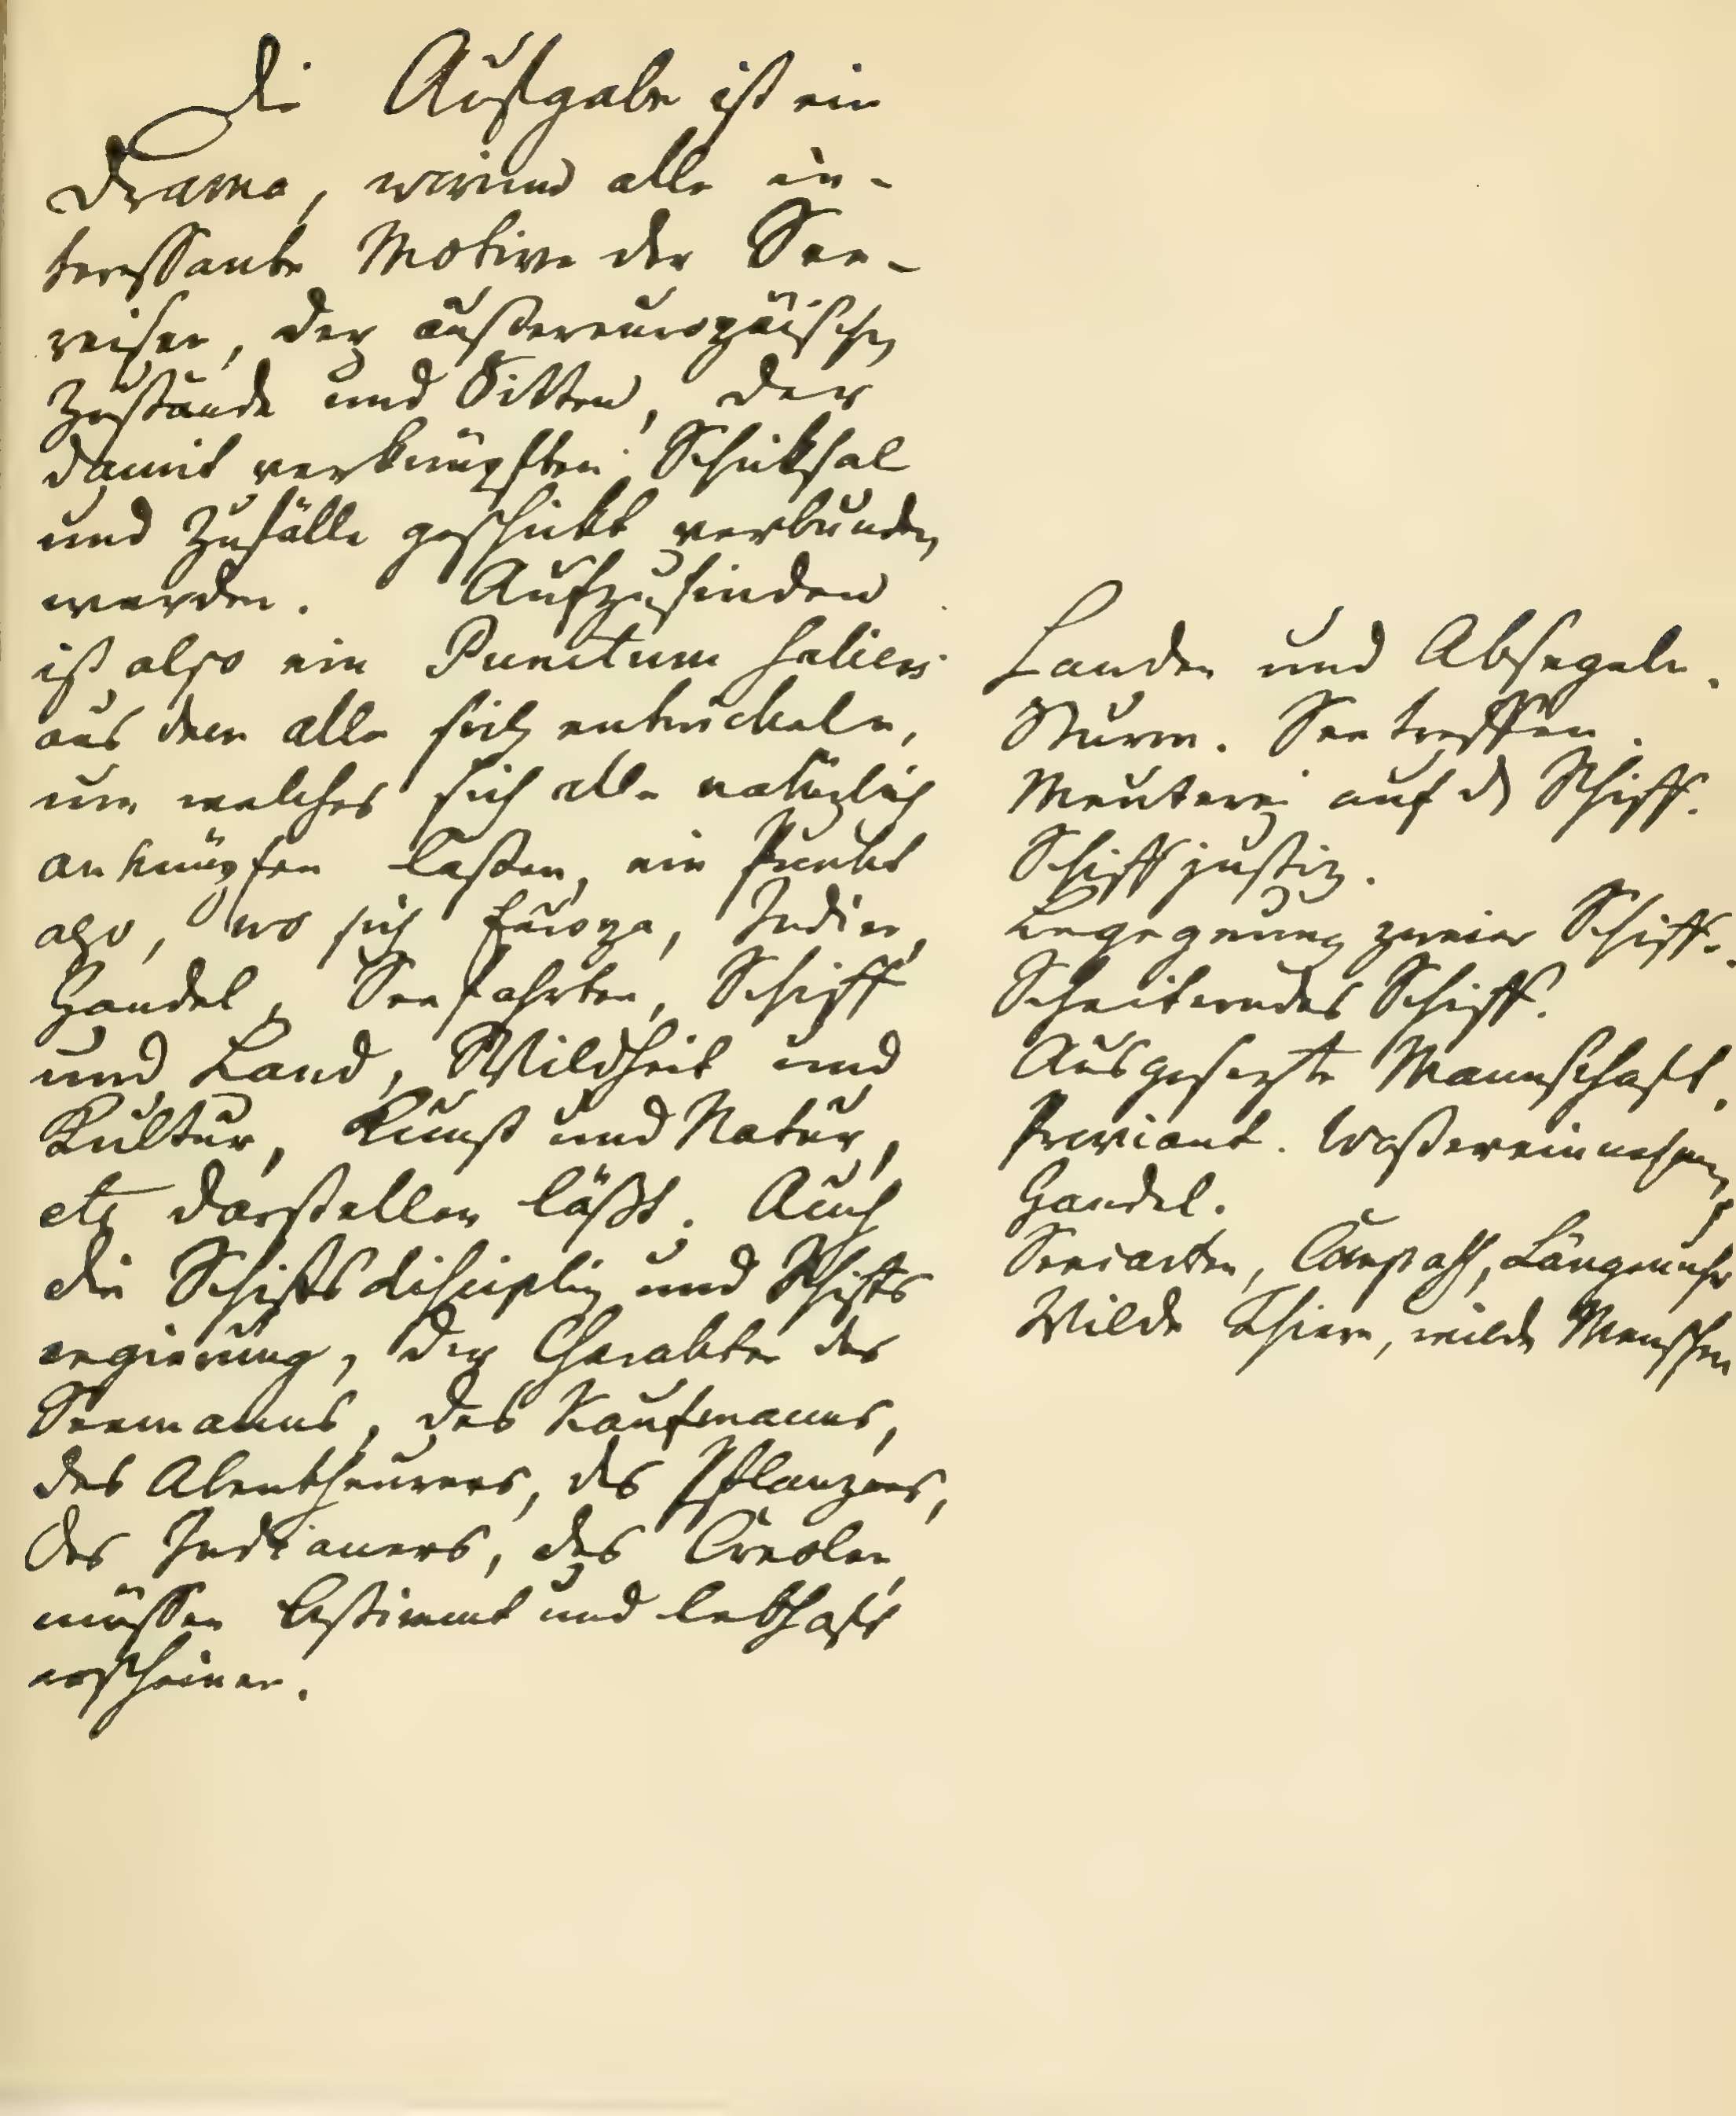 Die Aufgabe ist ein
Drama, worinn alle in-
teressante Motive der See-
reisen, der außereuropäischen
Zustände und Sitten, der
damit verknüpften Schicksale
und Zufälle geschickt verbunden
werden. Aufzufinden
ist also ein Punctum saliens
aus dem alle sich entwickeln,
um welches sich alle natürlich
anknüpfen laßen, ein Punkt
also, wo sich Europa, Indien,
Handel, Seefahrten, Schiff
und Land, Wildheit und
Kultur, Kunst und Natur,
etc darstellen läßt. Auch
die Schiffsdisciplin und Schiffs
regierung, der Charakter des
Seemanns, des Kaufmanns,
des Abentheurers, des Pflanzers,
des Indianers, des Creolen,
müssen bestimmt und lebhaft
erscheinen.
Landen und Absegeln.
Sturm. Seetreffen.
Meuterei auf d Schiff.
Schiffjustiz.
Begegnung zweier Schiffe.
Scheiterndes Schiff.
Ausgesezte Mannschaft.
Proviant. Waßereinnehmen,
Handel.
Seecarten, Compaß, Längenuhr
Wilde Thiere, wilde Menschen